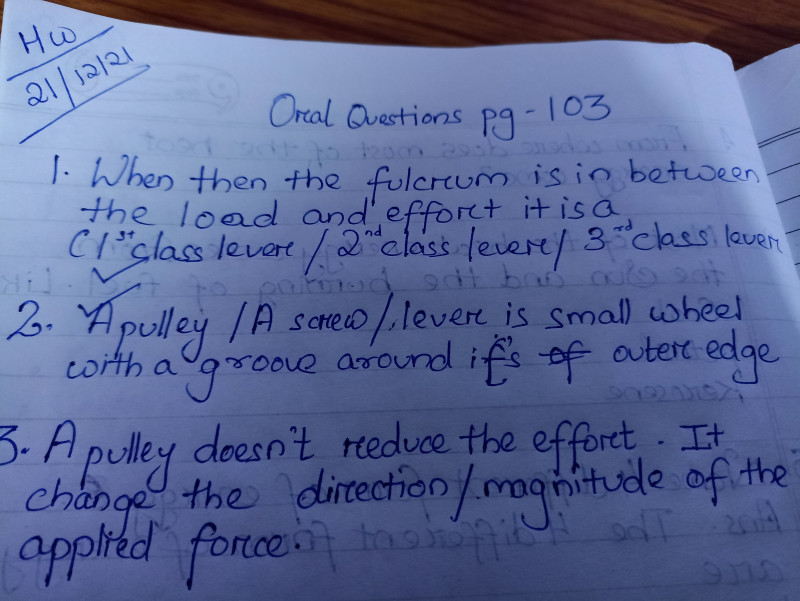 HW
21/12/21
Oral Questions pg-103
1. When then the fulcrum is in between
the load and effort it is a
(1st class lever / 2nd class lever / 3rd class lever
2. A pulley / A screw / lever is small wheel
with a groove around it's of outer edge
3. A pulley doesn't reduce the effort. It
change the direction / magnitude of the
applied force.